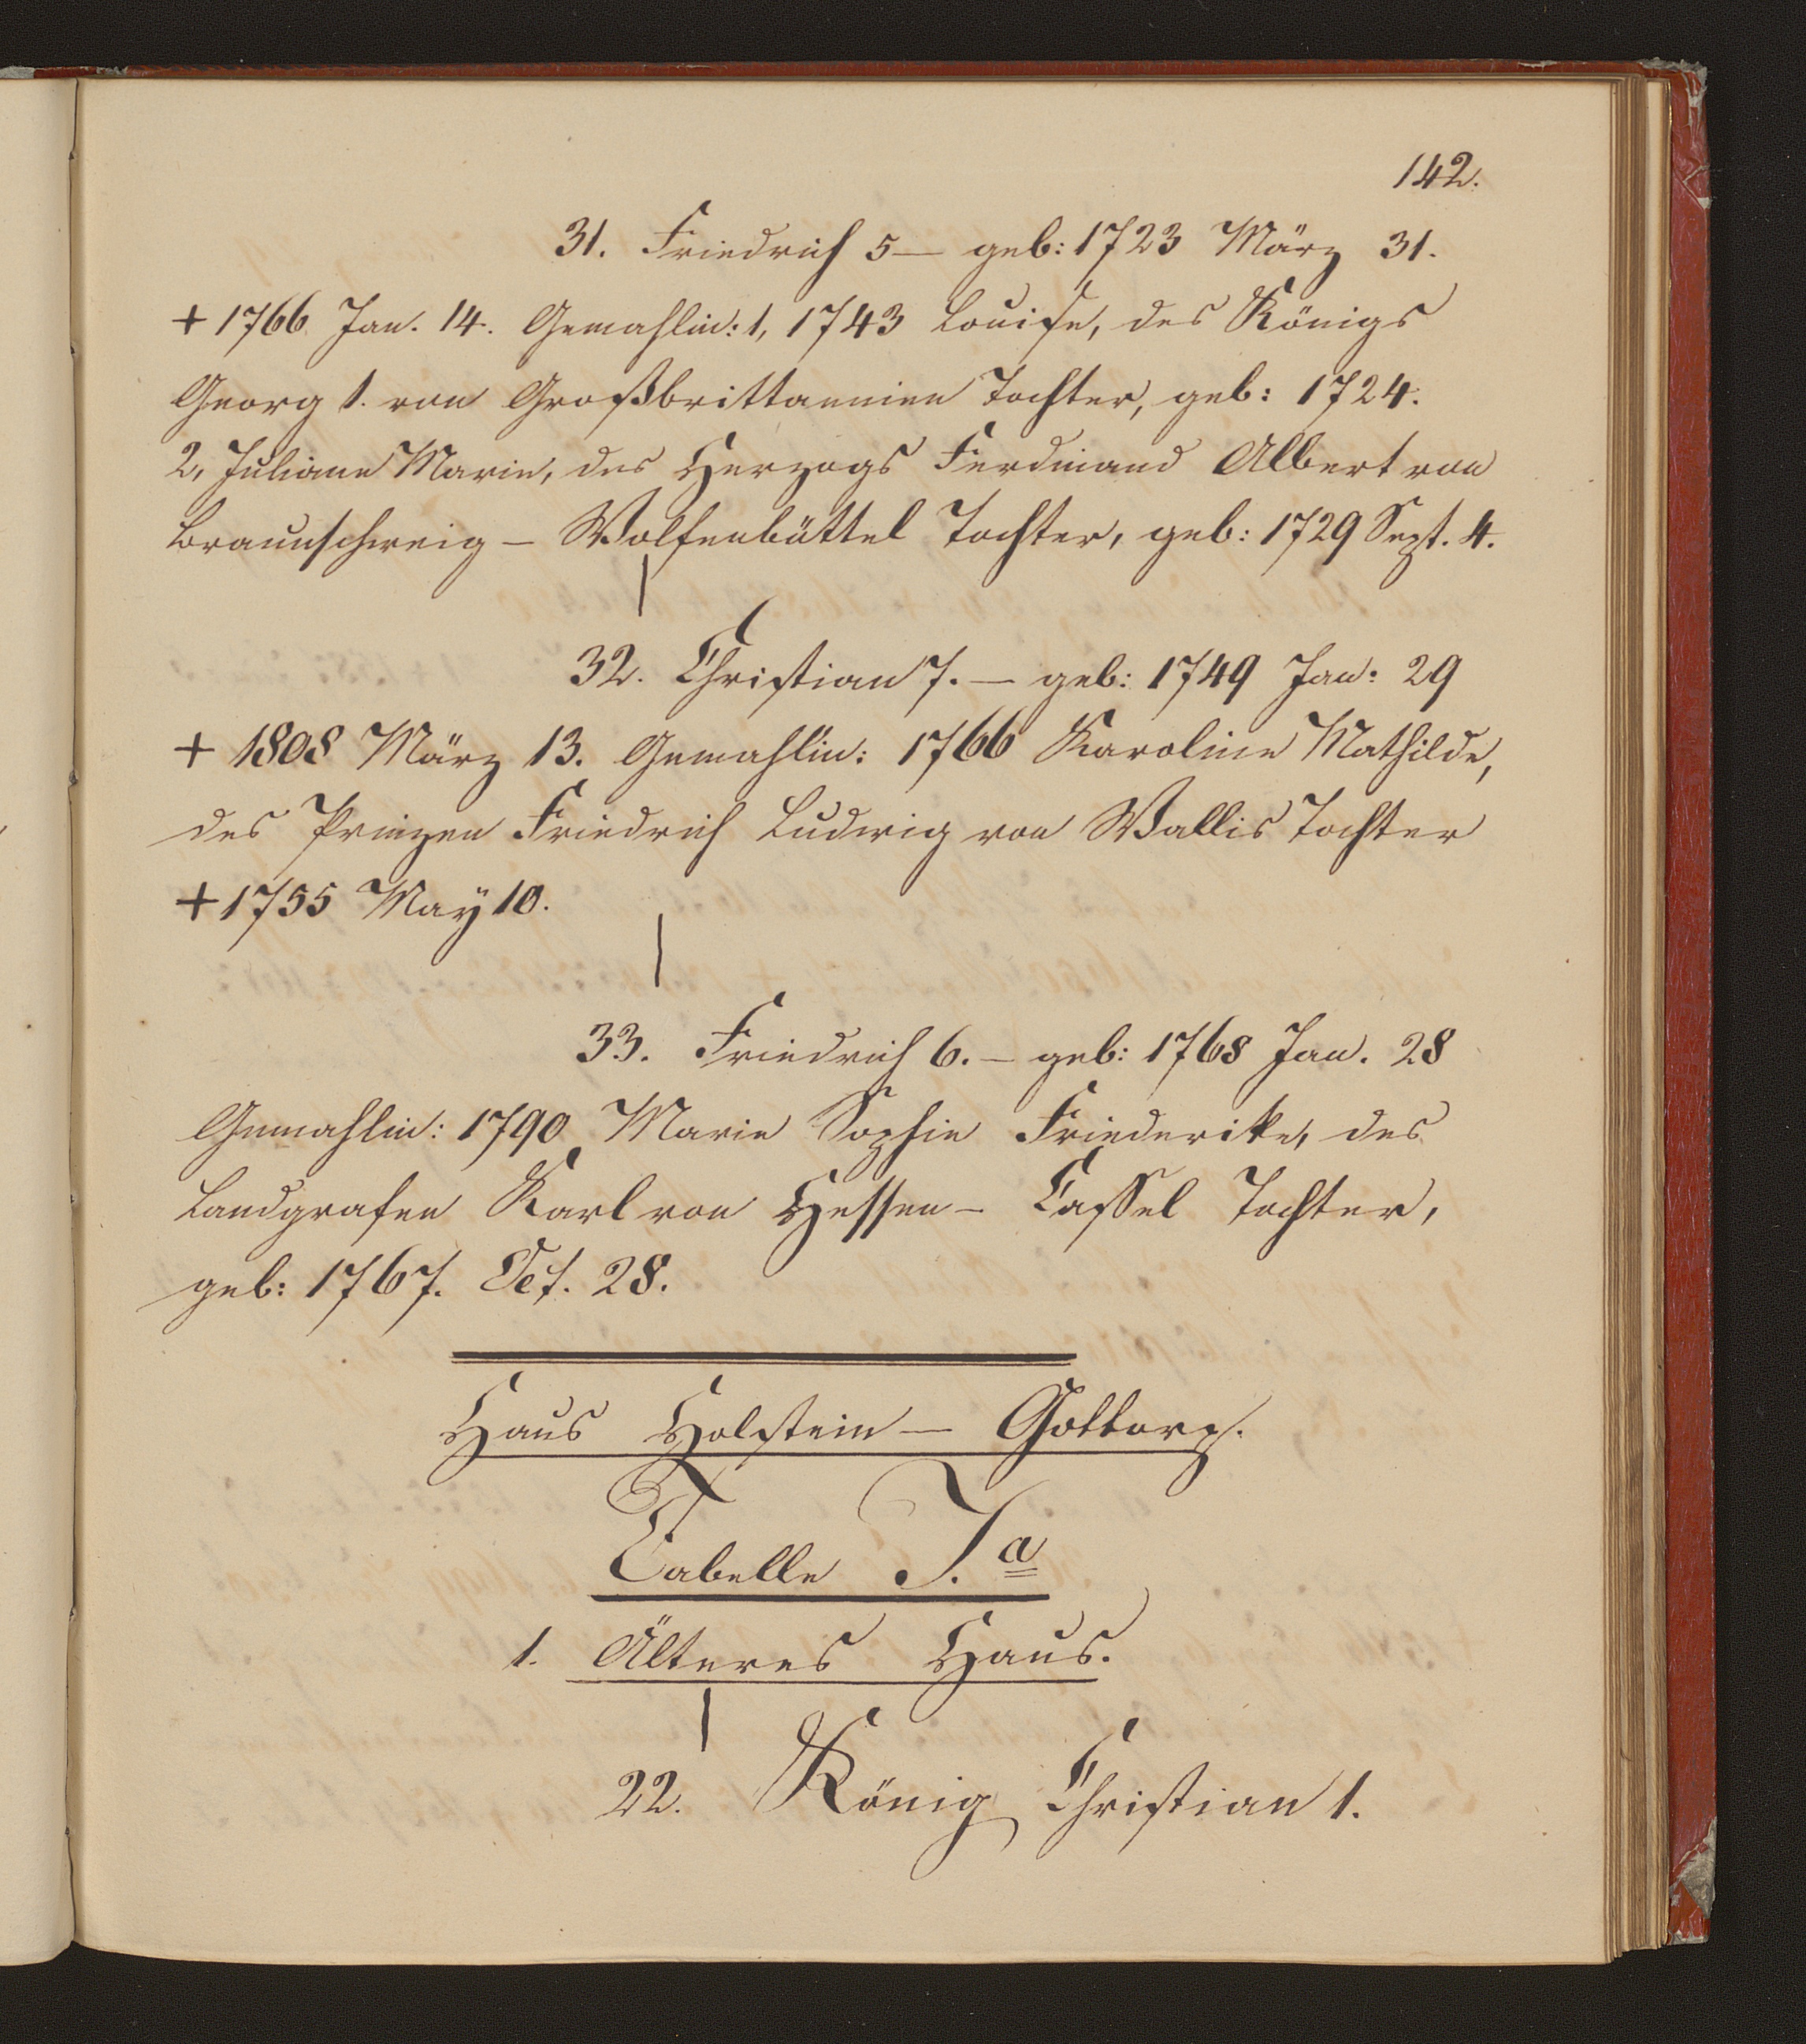 142.
31. Friedrich 5 — geb: 1723 März 31.
+ 1766 Jan. 14. Gemahlin: 1, 1743 Louise, des Königs
Georg 1. von Großbrittannien Tochter, geb: 1724.
2, Juliane Marie, des Herzogs Ferdinand Albert von
Braunschweig – Wolfenbüttel Tochter, geb: 1729 Sept. 4.
32. Christian 7. — geb: 1749 Jan: 29
+ 1808 März 13. Gemahlin: 1766 Karoline Mathilde,
des Prinzen Friedrich Ludwig von Wallis Tochter
+ 1755 Maÿ 10.
33. Friedrich 6. — geb: 1768 Jan. 28
Gemahlin: 1790 Marie Sophie Friederike, des
Landgrafen Karl von Hessen – Cassel Tochter,
geb: 1767. Oct. 28.
Haus Holstein — Gottorp.
Tabelle I. a
1. Älteres Haus.
22. König Christian 1.